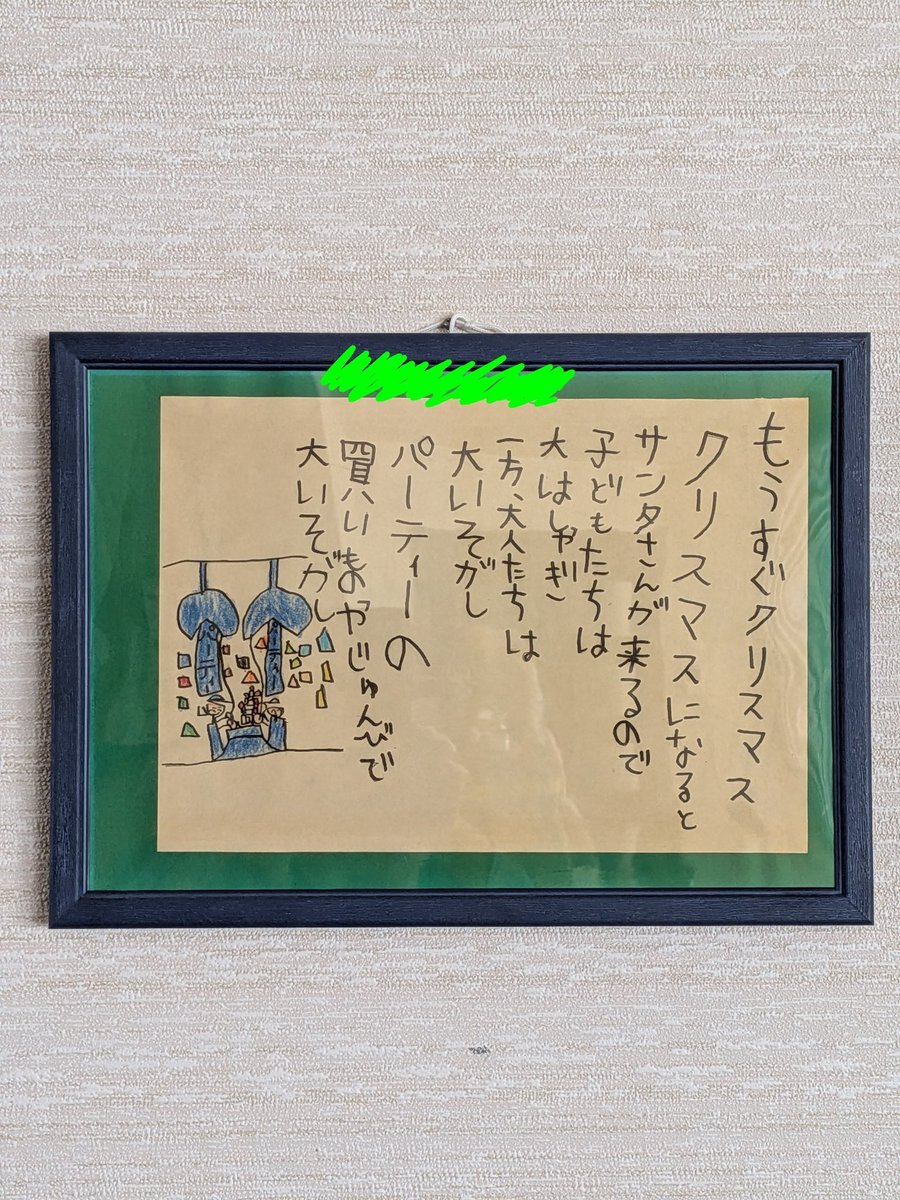 もうすぐクリスマス
クリスマスになると
サンタさんが来るので
子どもたちは
大はしゃぎ
一方、大人たちは
大いそがし
パーティーの
買いものやじゅんびで
大いそがし
パーティー
パーティー